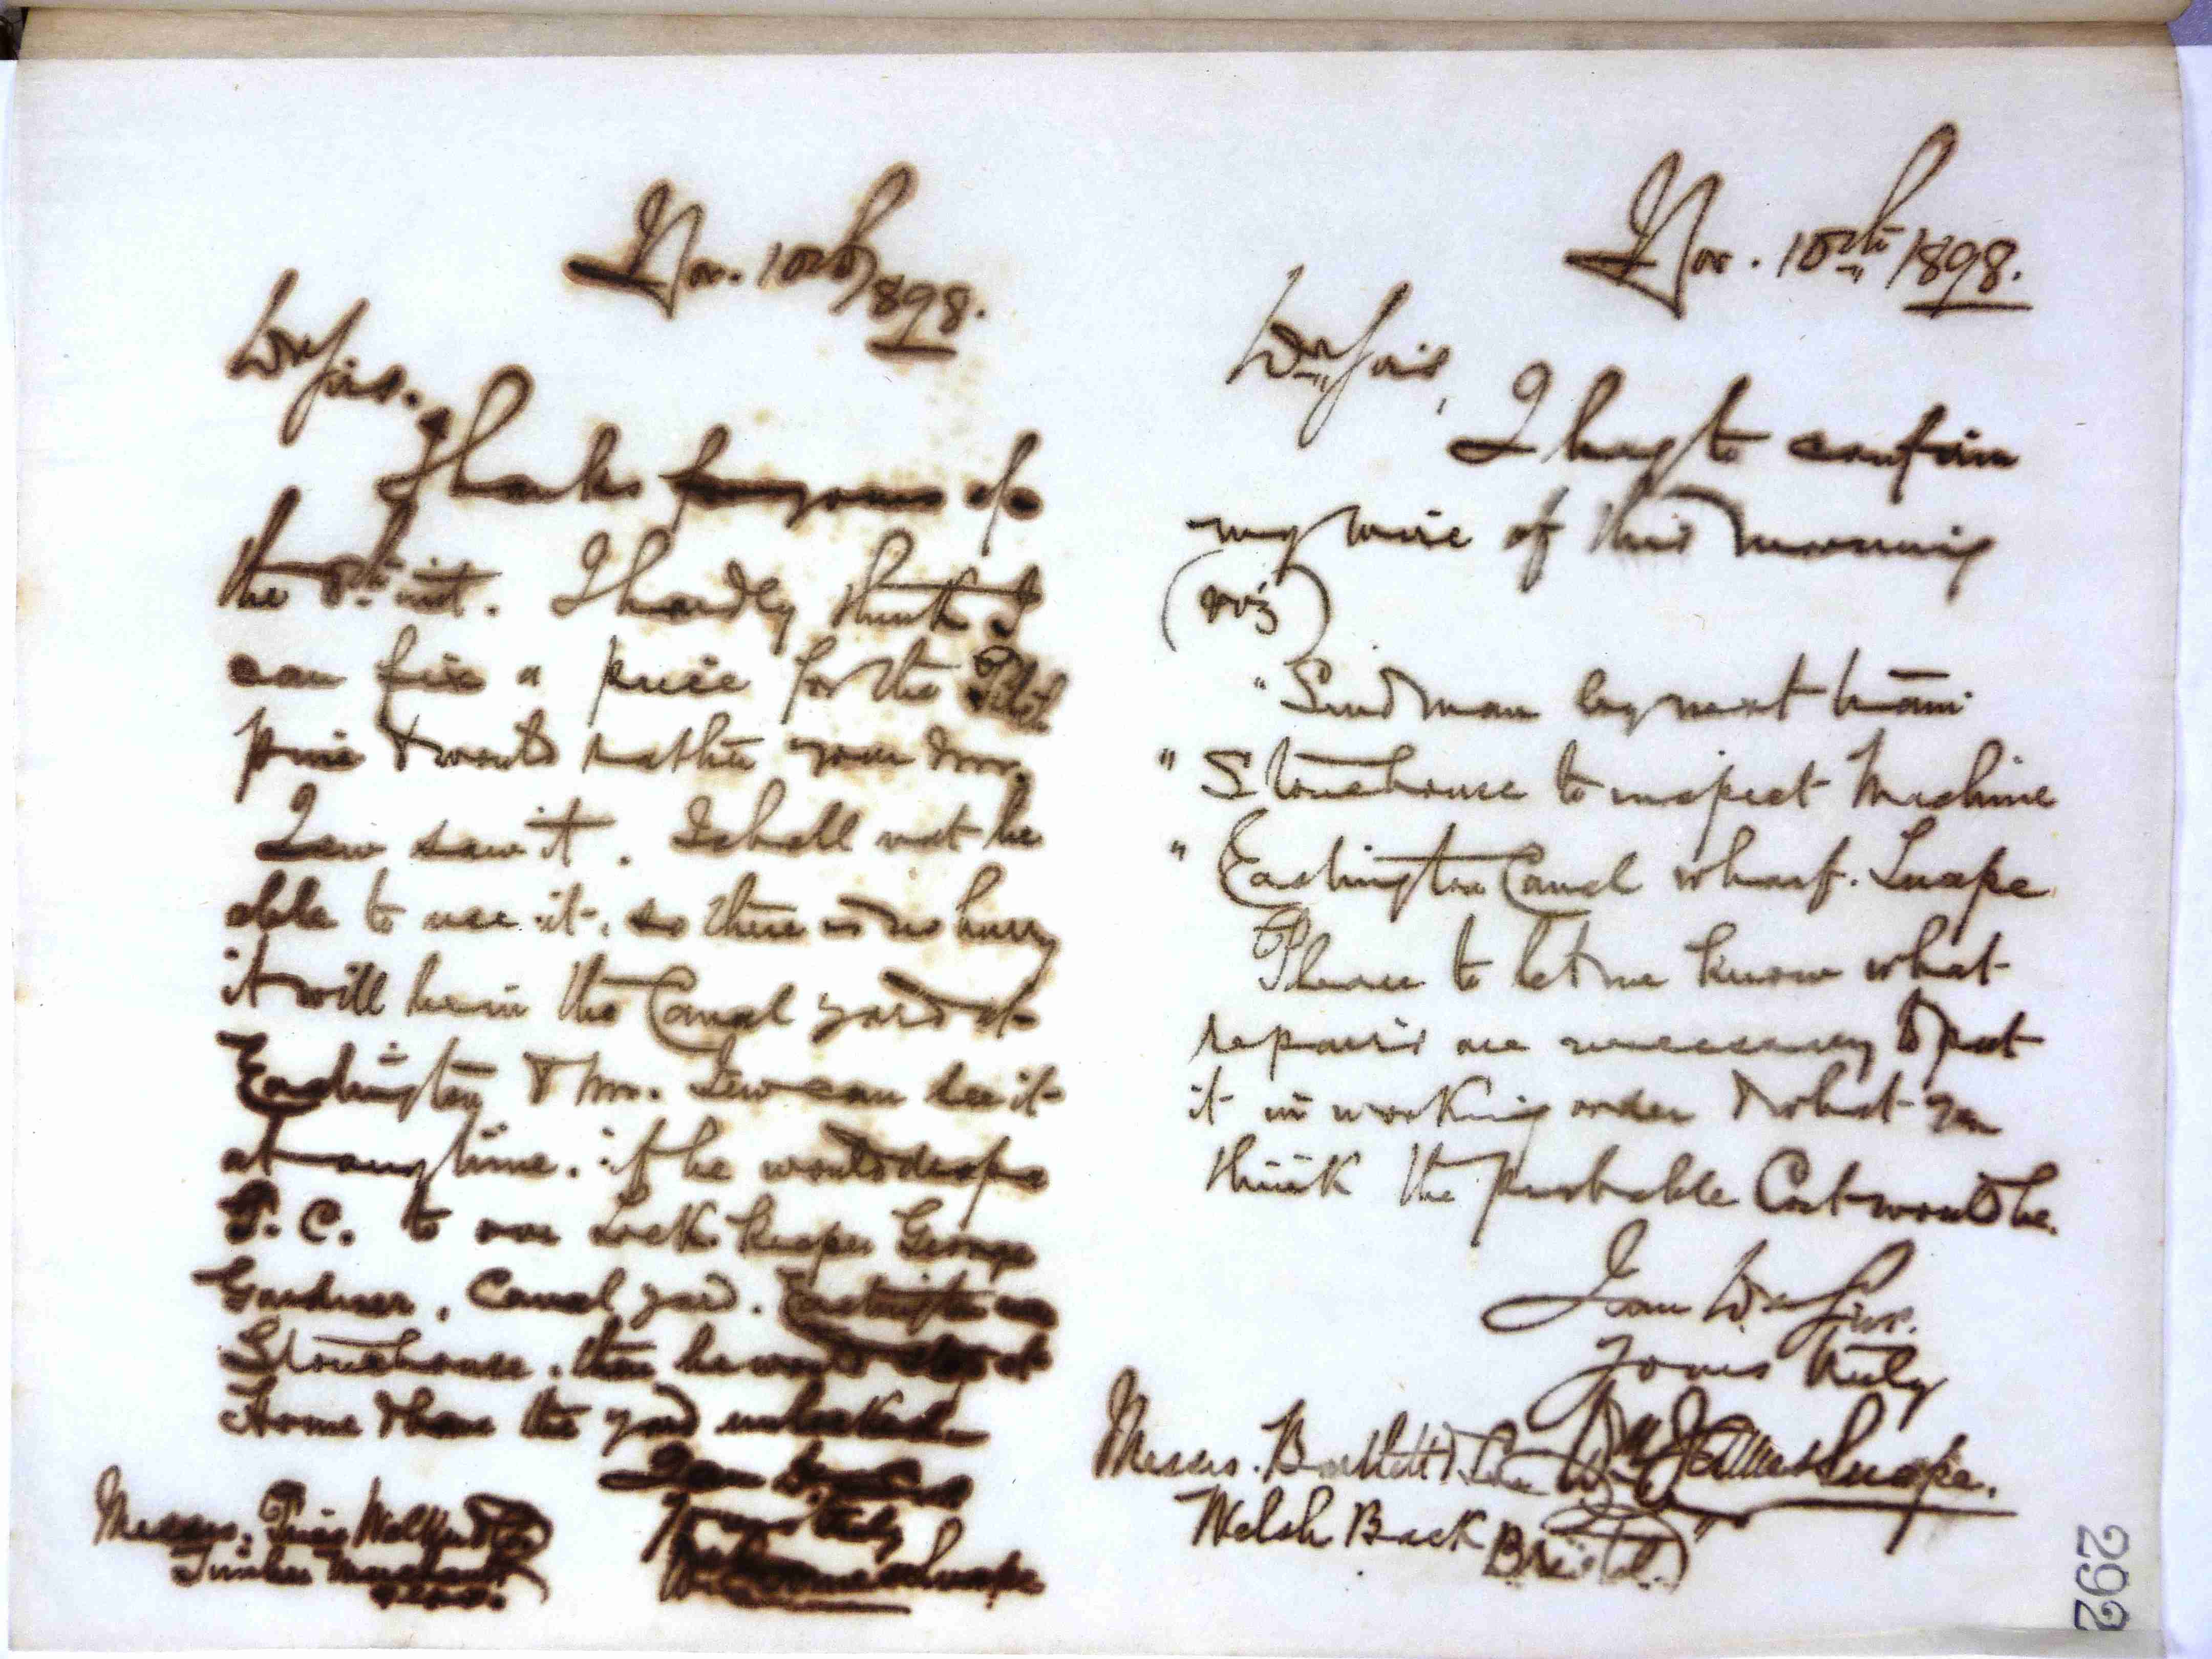 Nov. 10th/1898.
Dr Sirs.
Thanks for yours of
the 8th inst. I hardly think I
can fix a price for the Pitch
pine & would rather your Mr.
Lew saw it. I shall not be
able to use it. so there is no hurry
it will be in the Canal yard at
Eastington & Mr. Lew can see it
at any time. if he would drop a
P.C. to our Lock keeper George
Gardner. Canal yard. Eastington near
Stonehouse. then he would be at
Home & have the yard unlocked.
I am Dr Sirs
Yours truly
Wm James Snape
Messrs. Price Walker & Co.
Timber Merchants
Nov. 10th 1898.
Dr Sirs,
I beg to confirm
my wire of this morning
(viz)
"Send man by next train
" Stonehouse to inspect Machine
" Eastington Canal wharf. Snape
Please to let me know what
repairs are necessary to put
it in working order & what you
think the probable Cost would be.
I am Dr Sirs.
Yours truly
Wm James Snape.
Messrs. Bartlett &
Welsh Back Bristol.
292